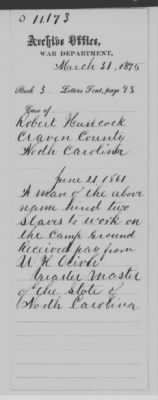 O 11173
Archive Office,
WAR DEPARTMENT,
March 31, 1876
Book 3 Letters Sent, page 98
Case of
Robert Hancock
Craven County
North Carolina
June 21 1861
A man of the above
name hired two
slaves to work on
the Camp Ground
Received pay from
W K
Quarter Master
of the State of
North Carolina